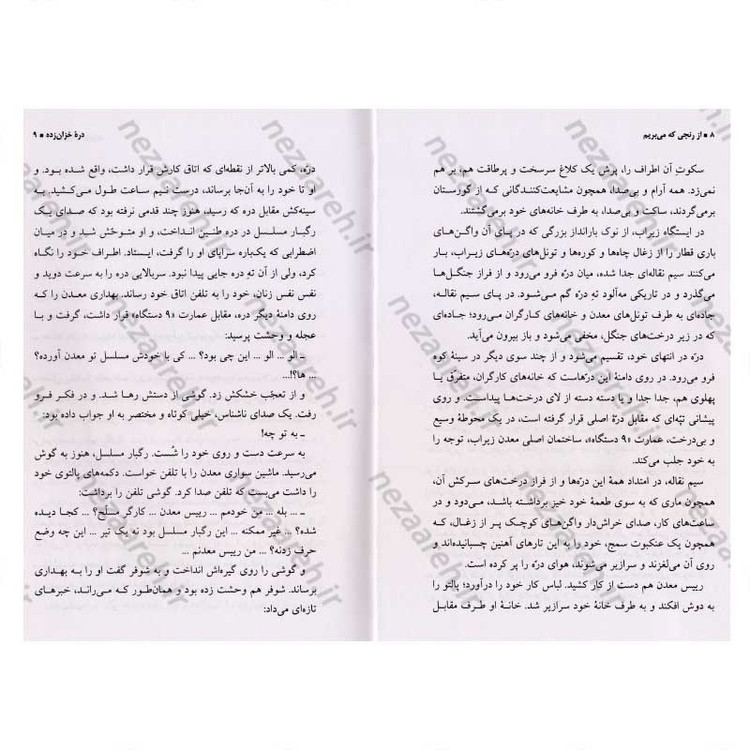 ۸ ■ از رنجی که می‌بریم
سکوتِ آن اطراف را، پرش یک کلاغ سرسخت و پرطاقت هم، بر هم
نمی‌زد. همه آرام و بی‌صدا، همچون مشایعت‌کنندگانی که از گورستان
برمی‌گردند، ساکت و بی‌صدا، به طرف خانه‌های خود برمی‌گشتند.
در ایستگاه زیراب، از نوک بارانداز بزرگی که در پای آن واگن‌های
باری قطار را از زغال چاه‌ها و کوره‌ها و تونل‌های دره‌های زیراب، بار
می‌کنند سیم نقاله‌ای جدا شده، میان درّه فرو می‌رود و از فراز جنگل‌ها
می‌گذرد و در تاریکی مه‌آلود تهِ درّه گم می‌شود. در پای سیم نقاله،
جاده‌ای به طرف تونل‌های معدن و خانه‌های کارگران می‌رود؛ جاده‌ای
که در زیر درخت‌های جنگل، مخفی می‌شود و باز بیرون می‌آید.
درّه در انتهای خود، تقسیم می‌شود و از چند سوی دیگر در سینهٔ کوه
فرو می‌رود. در روی دامنهٔ این درّهاست که خانه‌های کارگران، متفرّق یا
پهلوی هم، جدا جدا و یا دسته دسته از لای درخت‌ها پیداست. و روی
پیشانی تپّه‌ای که مقابل درّه اصلی قرار گرفته است، در یک محوطهٔ وسیع و
بی‌درخت، عمارت «۹ دستگاه»، ساختمان اصلی معدن زیراب، توجه را
به خود جلب می‌کند.
سیم نقاله، در امتداد همهٔ این درّه‌ها و از فراز درخت‌های سرکش آن،
همچون ماری که به سوی طعمهٔ خود خیز برداشته باشد، می‌دود و در
ساعت‌های کار، صدای خراش‌دار واگن‌های کوچک پر از زغال، که
همچون یک عنکبوت سمج، خود را به این تارهای آهنین چسبانیده‌اند و
روی آن می‌لغزند و سرازیر می‌شوند، هوای درّه را پر کرده است.
رییس معدن هم دست از کار کشید. لباس کار خود را درآورد؛ پالتو را
به دوش افکند و به طرف خانهٔ خود سرازیر شد. خانهٔ او طرف مقابل
درهٔ خزان‌زده ■ ۹
درّه، کمی بالاتر از نقطه‌ای که اتاق کارش قرار داشت، واقع شده بود. و
او تا خود را به آن‌جا برساند، درست نیم ساعت طول می‌کشید. به
سینه‌کش مقابل دره که رسید، هنوز چند قدمی نرفته بود که صدای یک
رگبار مسلسل در دره طنین انداخت، و او متوحّش شد و در میان
اضطرابی که یک‌باره سراپای او را گرفت، ایستاد. اطراف خود را نگاه
کرد، ولی از آن تهِ دره جایی پیدا نبود. سربالایی دره را به سرعت دوید و
نفس نفس زنان، خود را به تلفن اتاق خود رساند. بهداری معدن را که
روی دامنهٔ دیگر دره، مقابل عمارت «۹ دستگاه» قرار داشت، گرفت و با
عجله و وحشت پرسید:
ـ الو ... الو ... این چی بود؟ ... کی با خودش مسلسل تو معدن آورده؟
... ها؟!...
و از تعجّب خشکش زد. گوشی از دستش رها شد. و در فکر فرو
رفت. یک صدای ناشناس، خیلی کوتاه و مختصر به او جواب داده بود:
ـ به تو چه!
به سرعت دست و روی خود را شُست. رگبار مسلسل، هنوز به گوش
می‌رسید. ماشین سواری معدن را با تلفن خواست. دکمه‌های پالتوی خود
را داشت می‌بست که تلفن صدا کرد. گوشی تلفن را برداشت:
ـ ... بله ... من خودمم ... رییس معدن ... کارگر مسلّح؟ ... کجا دیده
شده؟ ... غیر ممکنه ... این رگبار مسلسل بود نه یک تیر ... این چه وضع
حرف زدنه؟ ... من رییس معدنم ...
و گوشی را روی گیره‌اش انداخت و به شوفر گفت او را به بهداری
برساند. شوفر هم وحشت زده بود و همان‌طور که می‌راند، خبرهای
تازه‌ای می‌داد:
nezaareh.ir
nezaareh.ir
nezaareh.ir
nezaareh.ir
nezaareh.ir
nezaareh.ir
nezaareh.ir
nezaareh.ir